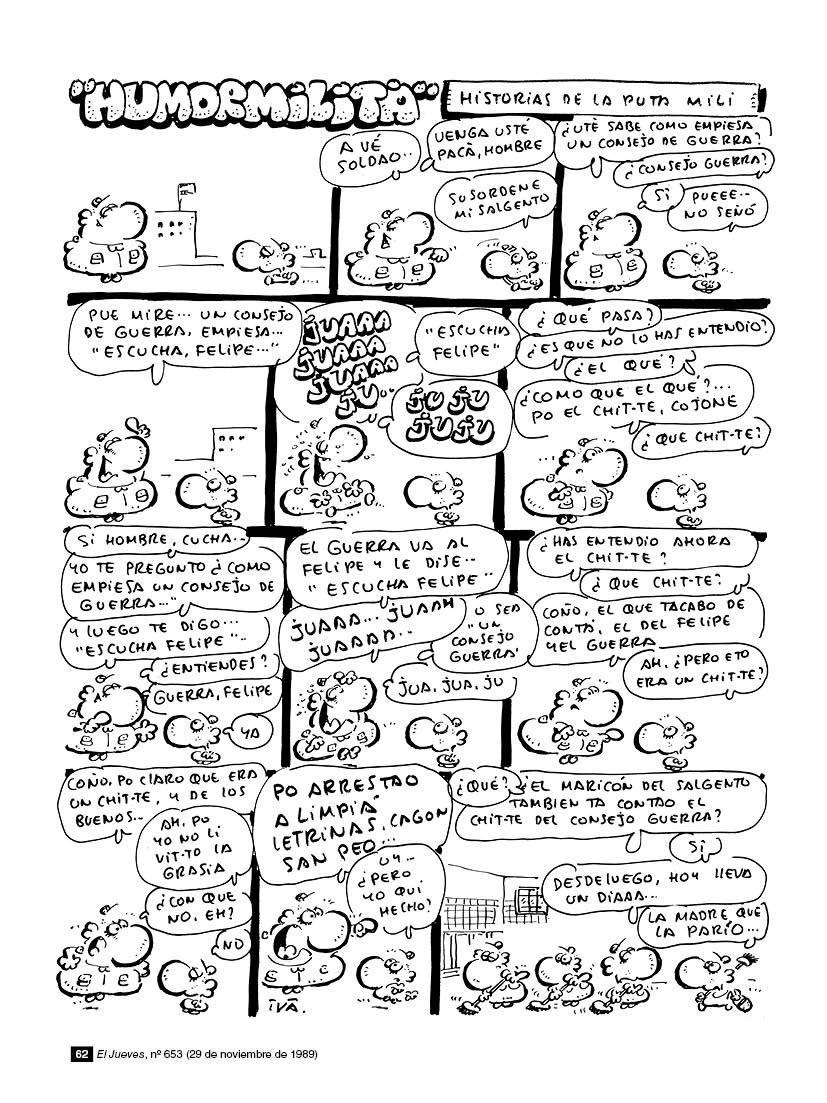 "HUMORMILITÁ"
HISTORIAS DE LA PUTA MILI
A VÉ
SOLDAO..
VENGA USTÉ
PACÁ, HOMBRE
SUSORDENE
MI SALGENTO
¿UTÉ SABE COMO EMPIESA
UN CONSEJO DE GUERRA?
¿CONSEJO GUERRA?
SI
PUEEE..
NO SEÑÓ
PUE MIRE... UN CONSEJO
DE GUERRA, EMPIESA...
"ESCUCHA, FELIPE..."
JUAAA
JUAAA
JUAAAA
JU..
"ESCUCHA
FELIPE"
JU JU
JUJU
¿QUÉ PASA?
¿ES QUE NO LO HAS ENTENDIO?
¿EL QUÉ?
¿COMO QUE EL QUÉ?...
PO EL CHIT-TE, COJONE
¿QUE CHIT-TE?
SI HOMBRE, CUCHA..
YO TE PREGUNTO ¿COMO
EMPIESA UN CONSEJO DE
GUERRA..."
Y LUEGO TE DIGO...
"ESCUCHA FELIPE"..
¿ENTIENDES?
GUERRA, FELIPE
YA
EL GUERRA VA AL
FELIPE Y LE DISE..
"ESCUCHA FELIPE"
JUAAA... JUAAH
JUAAAA..
O SEA
"UN
CONSEJO
GUERRA"
JUA, JUA, JU
¿HAS ENTENDIO AHORA
EL CHIT-TE?
¿QUE CHIT-TE?
COÑO, EL QUE TACABO DE
CONTÁ, EL DEL FELIPE
Y EL GUERRA
AH, ¿PERO ETO
ERA UN CHIT-TE?
COÑO, PO CLARO QUE ERA
UN CHIT-TE, Y DE LOS
BUENOS..
AH, PO
YO NO LI
VIT-TO LA
GRASIA
¿CON QUE
NO, EH?
NO
PO ARRESTAO
A LIMPIÁ
LETRINAS, CAGON
SAN PEO...
UY..
¿PERO
YO QUI
HECHO?
IVÀ.
¿QUÉ?
¿EL MARICÓN DEL SALGENTO
TAMBIEN TA CONTAO EL
CHIT-TE DEL CONSEJO GUERRA?
SI
DESDELUEGO, HOY LLEVA
UN DIAAA...
LA MADRE QUE
LA PARIO...
62 El Jueves, nº 653 (29 de noviembre de 1989)